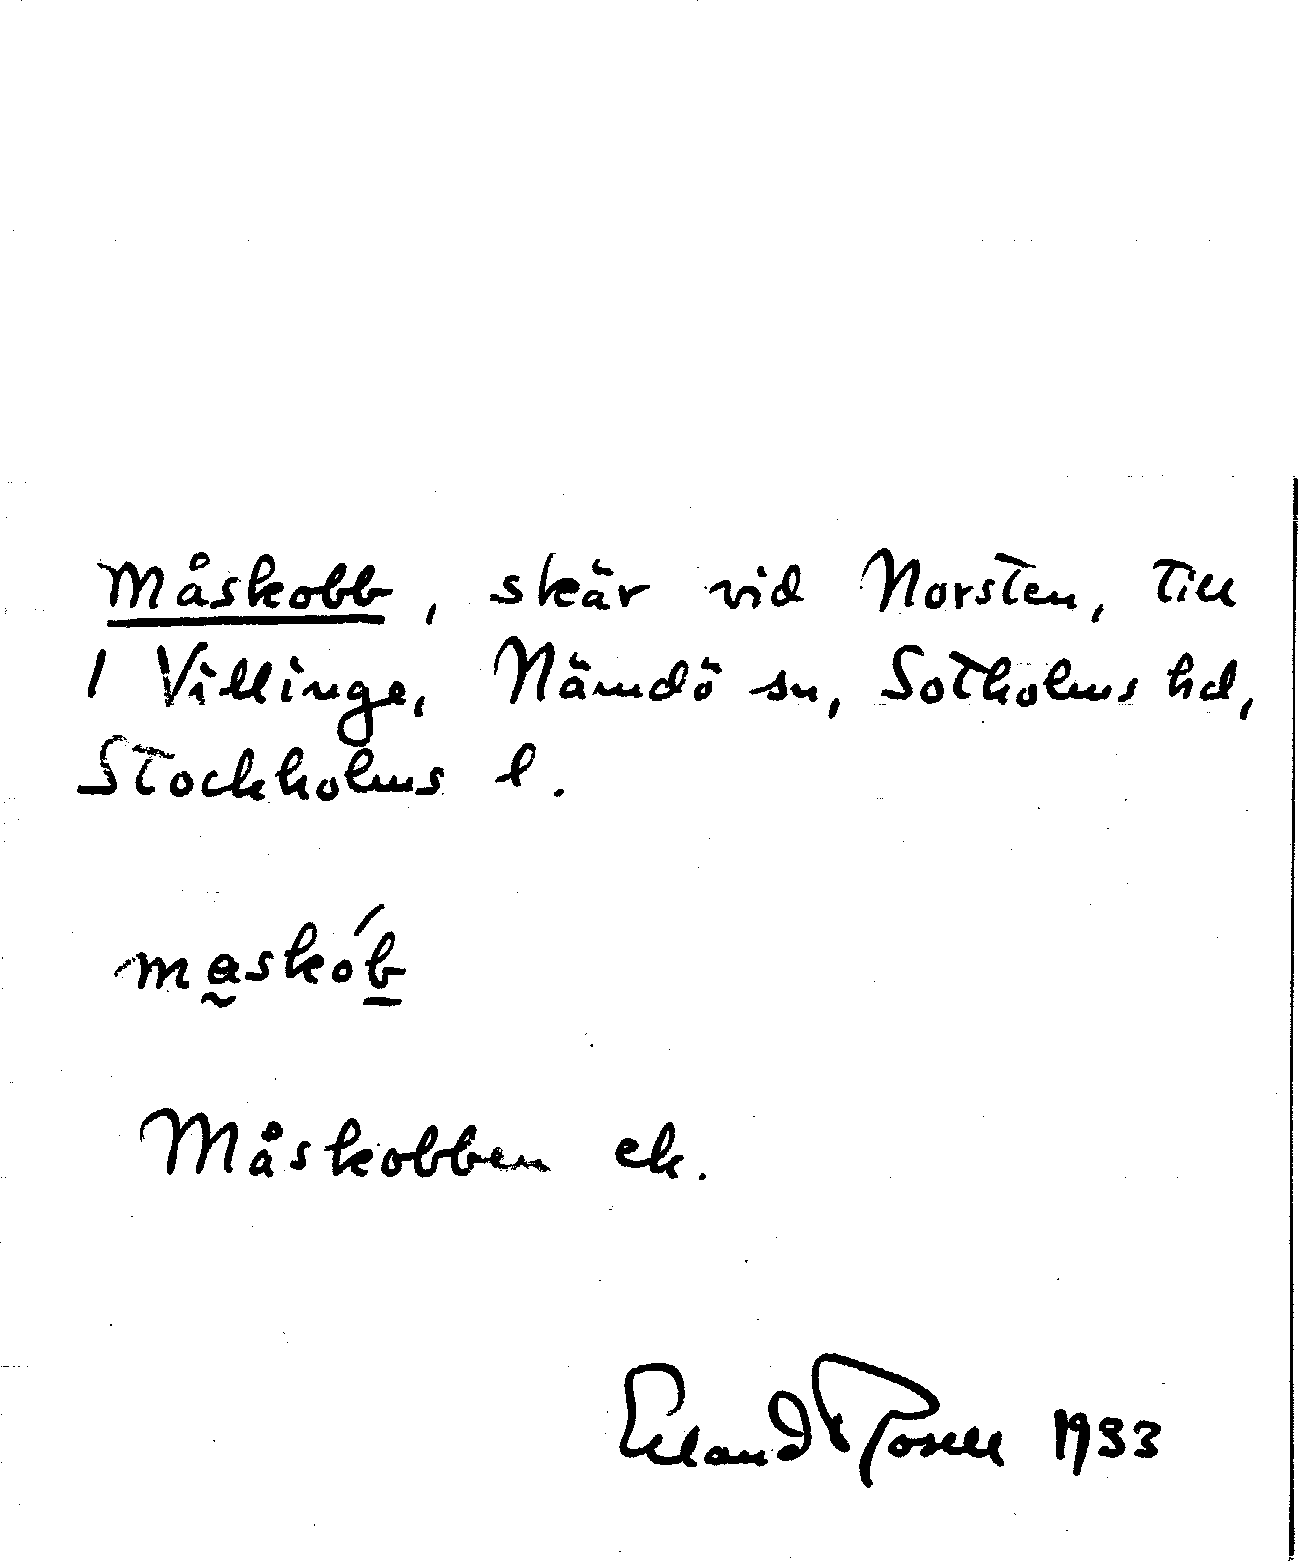 Måskobb, skär vid Norsten, till
1 Villinge, Nämdö sn, Sotholms hd,
Stockholms l.
ma̰skób̲
Måskobben ek.
Erland Rosell 1933